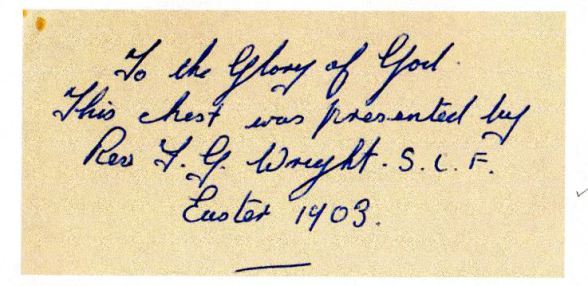 To the Glory of God.
This chest was presented by
Rev F. G. Wright. S. C. F.
Easter 1903.